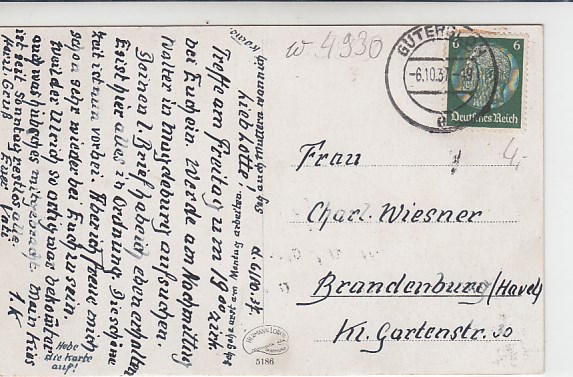 d. 6/10.37.
Lieb Lotte!
Treffe am Freitag um 19 Uhr
bei Euch ein. Werde am Nachmittag
Walter in Magdeburg aufsuchen.
Deinen l. Brief habe ich eben erhalten
hier alles in Ordnung. Die schöne
Zeit ist nun vorbei. Aber ich freue mich
schon sehr wieder bei Euch zu sein.
der Ulrich so
auch was hübsches mitgebracht. Mein Kurs
ist seit Sonntag restlos alle
Herzl. Gruß Euer Vati
I. K
Hebe
die Karte
auf!
w 4930
GÜTERSLOH
-6.10.37.-19
6 6
Deutsches Reich
4,-
Frau
Charl. Wiesner
Brandenburg (Havel)
Kl. Gartenstr. 30
5186